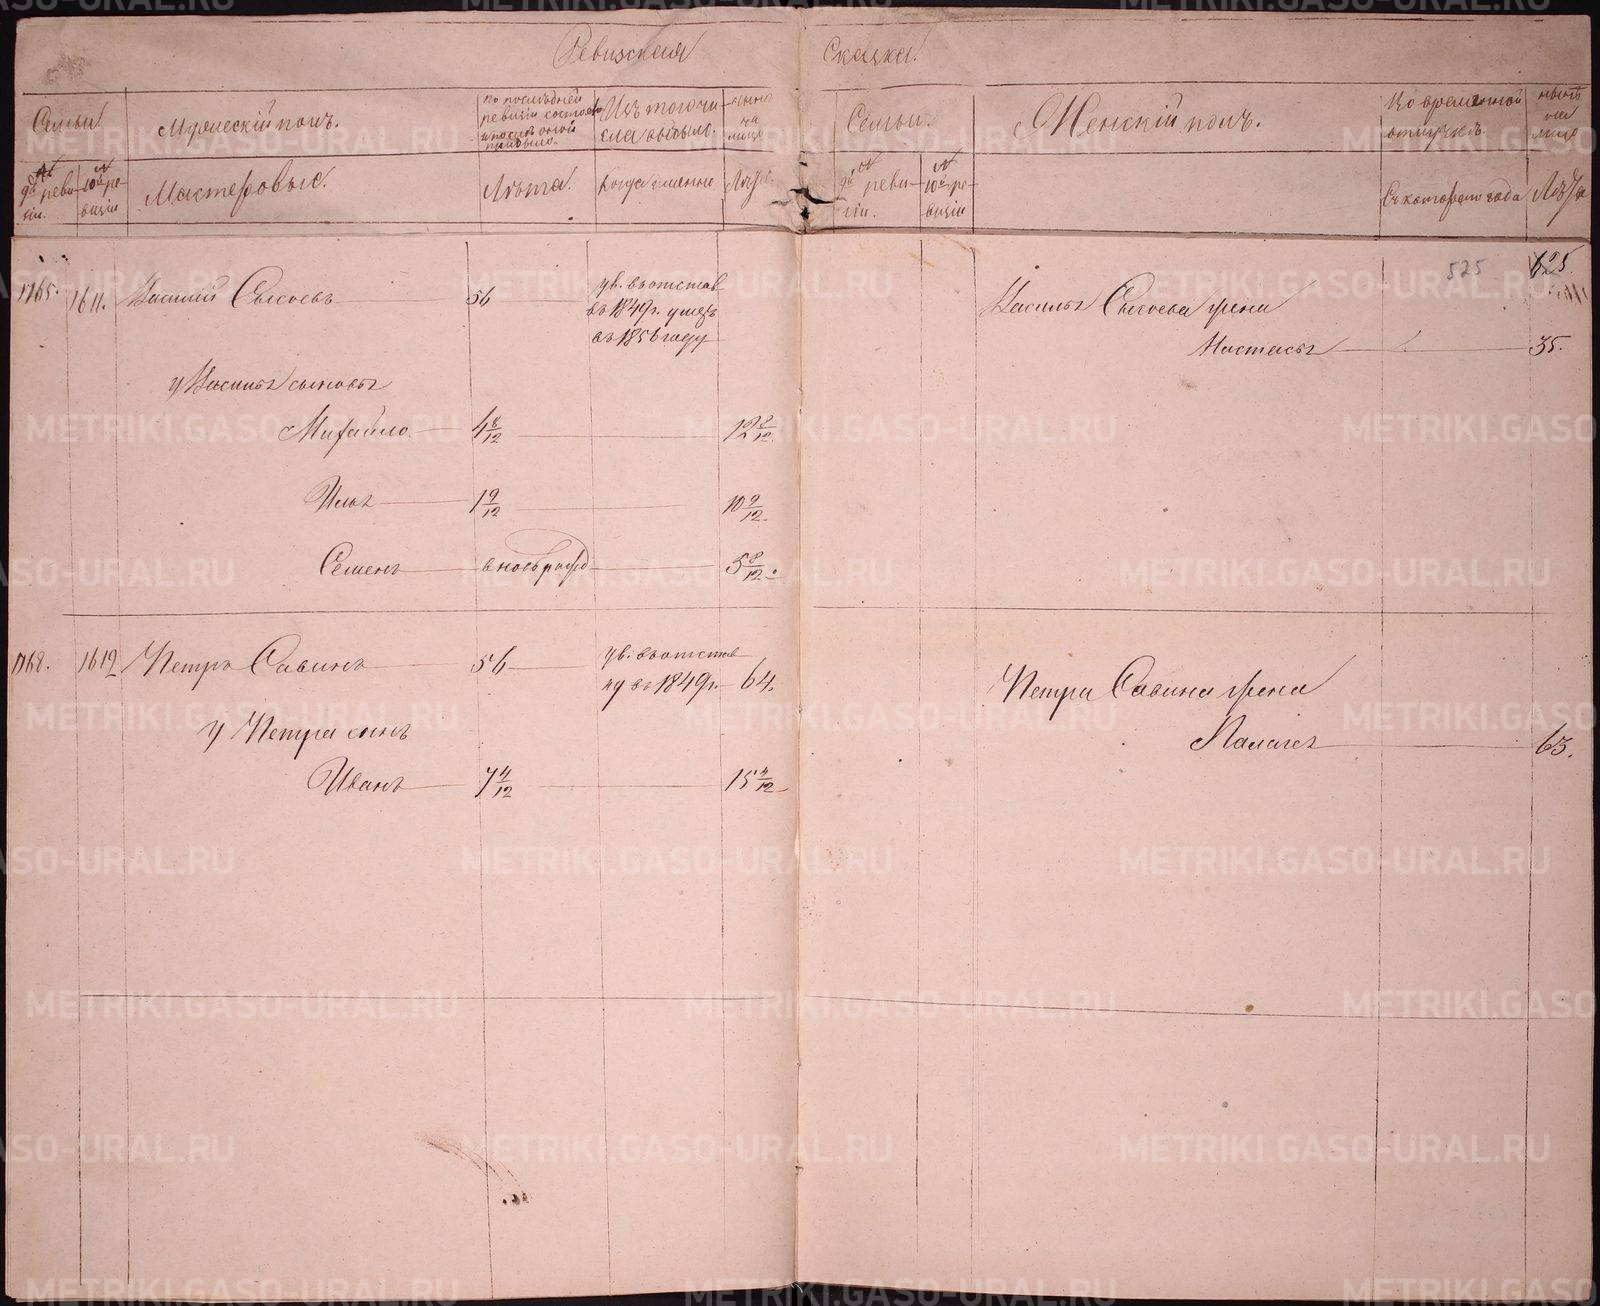 Ревизская Сказка.
Семьи
Мужескій полъ.
по послѣдней
ревизіи состояло
и послѣ оной
прибыло.
Изъ того чи
сла выбыло.
нынѣ
на
лице
Семьи.
Женскій полъ.
Во временной
отлучкѣ.
нынѣ
на
лице
№
9й реви
зіи.
№
10й ре
визіи
Мастеровые.
Лѣта.
Когда именно
Лѣта
№
9й реви
зіи.
№
10й ре
визіи
Съ котораго года
Лѣта
525
625.
1765. 1611. Василій Сысоевъ 56
ув. въ отстав
въ 1849 г. умеръ
въ 1856 году
Василья Сысоева жена
Настасья 35.
у Василья сыновья
Михайло 4 8/12 12 8/12.
Илья 1 9/12 10 9/12.
Семенъ вновь рожд 5 8/12.
1768. 1612 Петръ Савинъ 56
ув. въ отстав
ку въ 1849 г. 64.
Петра Савина жена
Палагея 63.
у Петра сынъ
Иванъ 7 4/12 15 4/12
METRIKI.GASO-URAL.RU